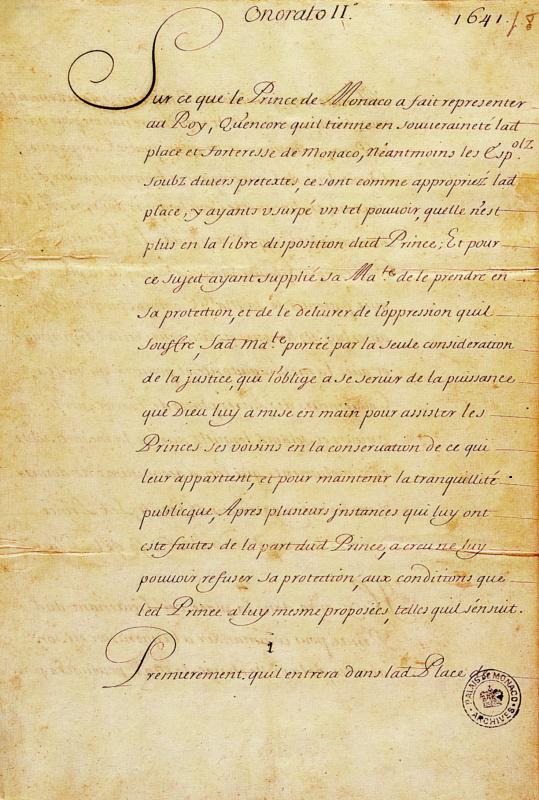 Onorato II.
1641.
Sur ce que le Prince de Monaco a fait representer
au Roy, Qu'encore quil tienne en souveraineté lad
place et forteresse de Monaco, Néantmoins les Espolz
soubz divers pretextes, ce sont comme appropriéz lad
place, y ayants usurpé un tel pouvoir, quelle n'est
plus en la libre disposition dud Prince; Et pour
ce sujed ayant supplié sa Mate de le prendre en
sa protection, et de le delivrer de l'oppression quil
souffre, Sad Mate portée par la seule consideration
de la justice, qui l'oblige a se servir de la puissance
que Dieu luy a mise en main pour assister les
Princes ses voisins en la conservation de ce qui
leur appartient, et pour maintenir la tranquillité
publicque, Apres plusieurs jnstances qui luy ont
este faictes de la part dud Prince, a creu ne luy
pouvoir refuser sa protection, aux conditions que
led Prince a luy mesme proposées, telles quil sensuit.
1
Premierement, quil entrera dans lad Place de
PALAIS DE MONACO
ARCHIVES